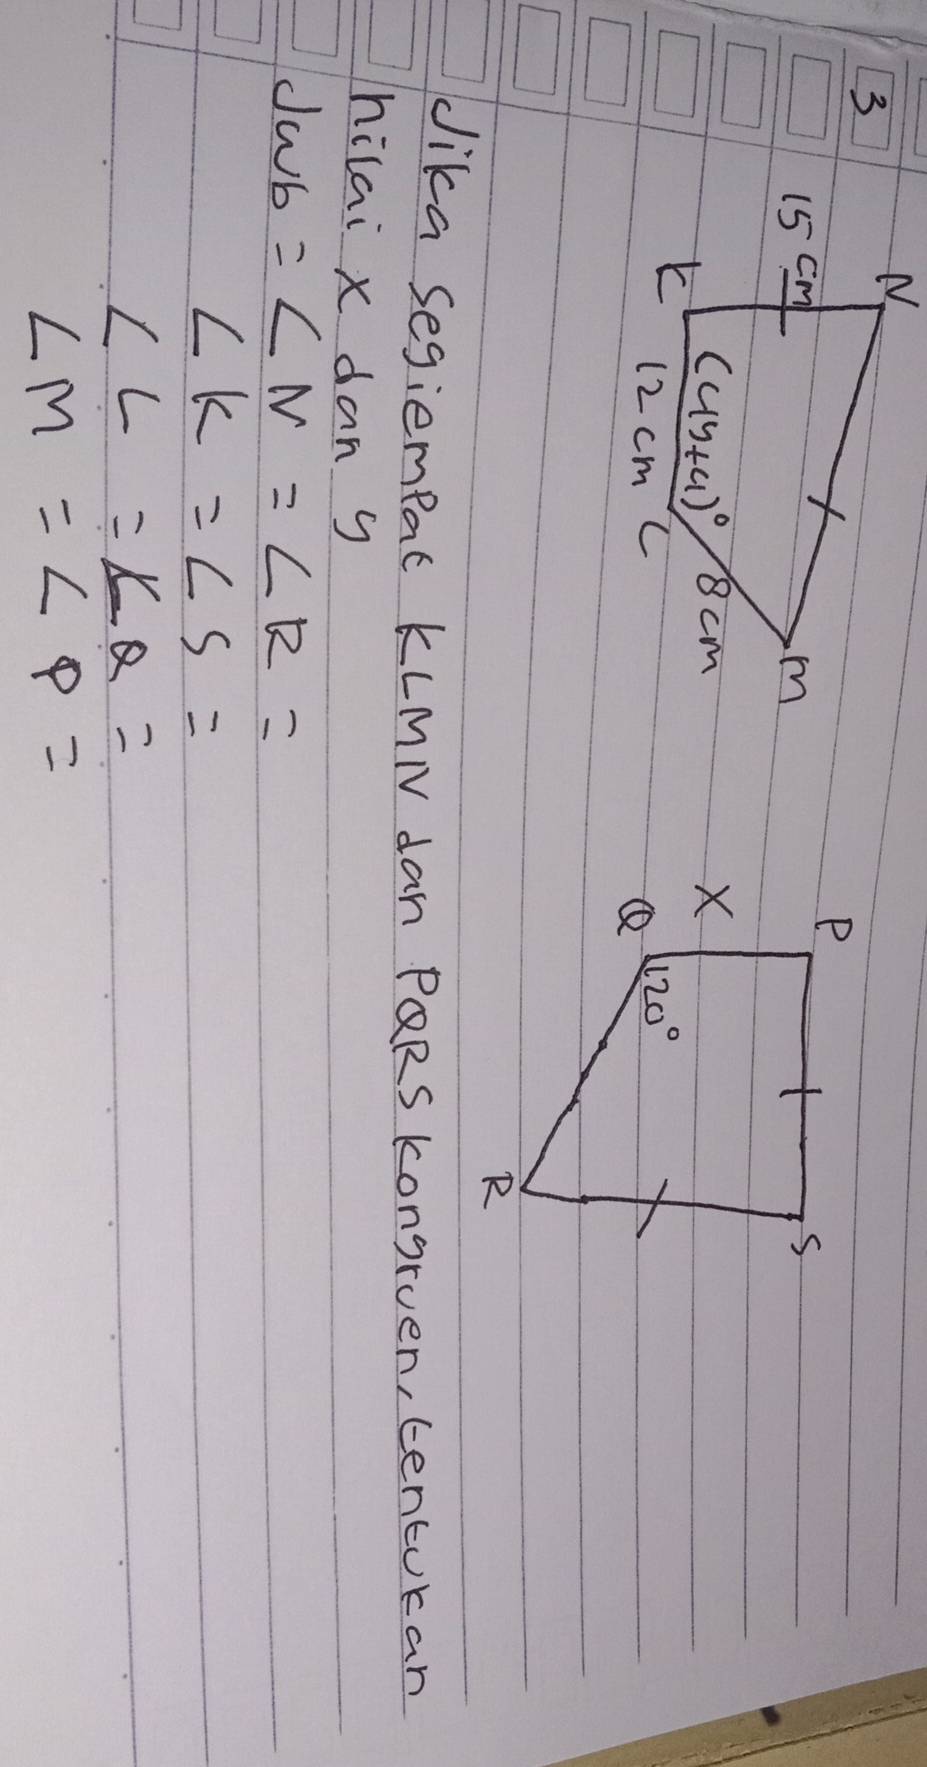 3
N
15 cm
(4y+4)°
K
12 cm
L
8 cm
M
P
X
Q
120°
S
R
Jika segiempat KLMN dan PQRS kongruen, tentukan
nilai x dan y
Jwb = ∠ N = ∠ R =
∠ K = ∠ S =
∠ L = ∠ Q =
∠ M = ∠ P =